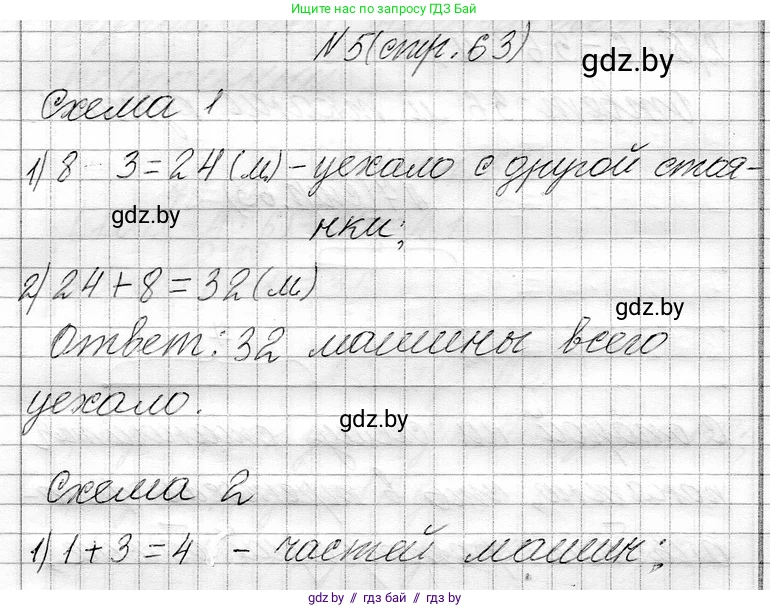 Ищите нас по запросу ГДЗ Бай
№5(стр. 63)
gdz.by
Схема 1
1) 8 3 = 24 (м) - уехало с другой стоя-
gdz.by
нки;
2) 24 + 8 = 32 (м)
gdz.by
Ответ: 32 машины всего
уехало.
gdz.by
Схема 2
1) 1 + 3 = 4 - частей машин;
gdz.by // гдз бай // gdz.by